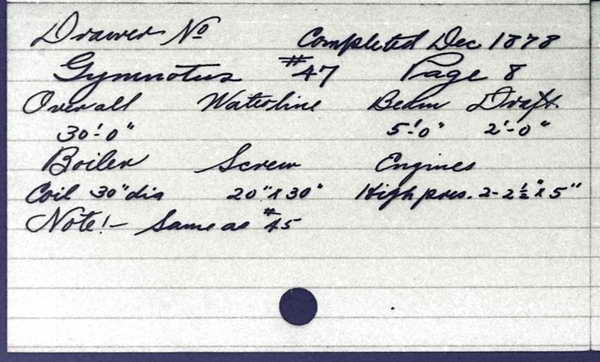 Drawer No Completed Dec 1878
Gymnotus #47 Page 8
Over all Waterline Beam Draft
30'-0" 5'-0" 2'-0"
Boiler Screw Engines
Coil 30" dia 20" x 30" High pres. 2-2½" x 5"
Note!- Same as #45